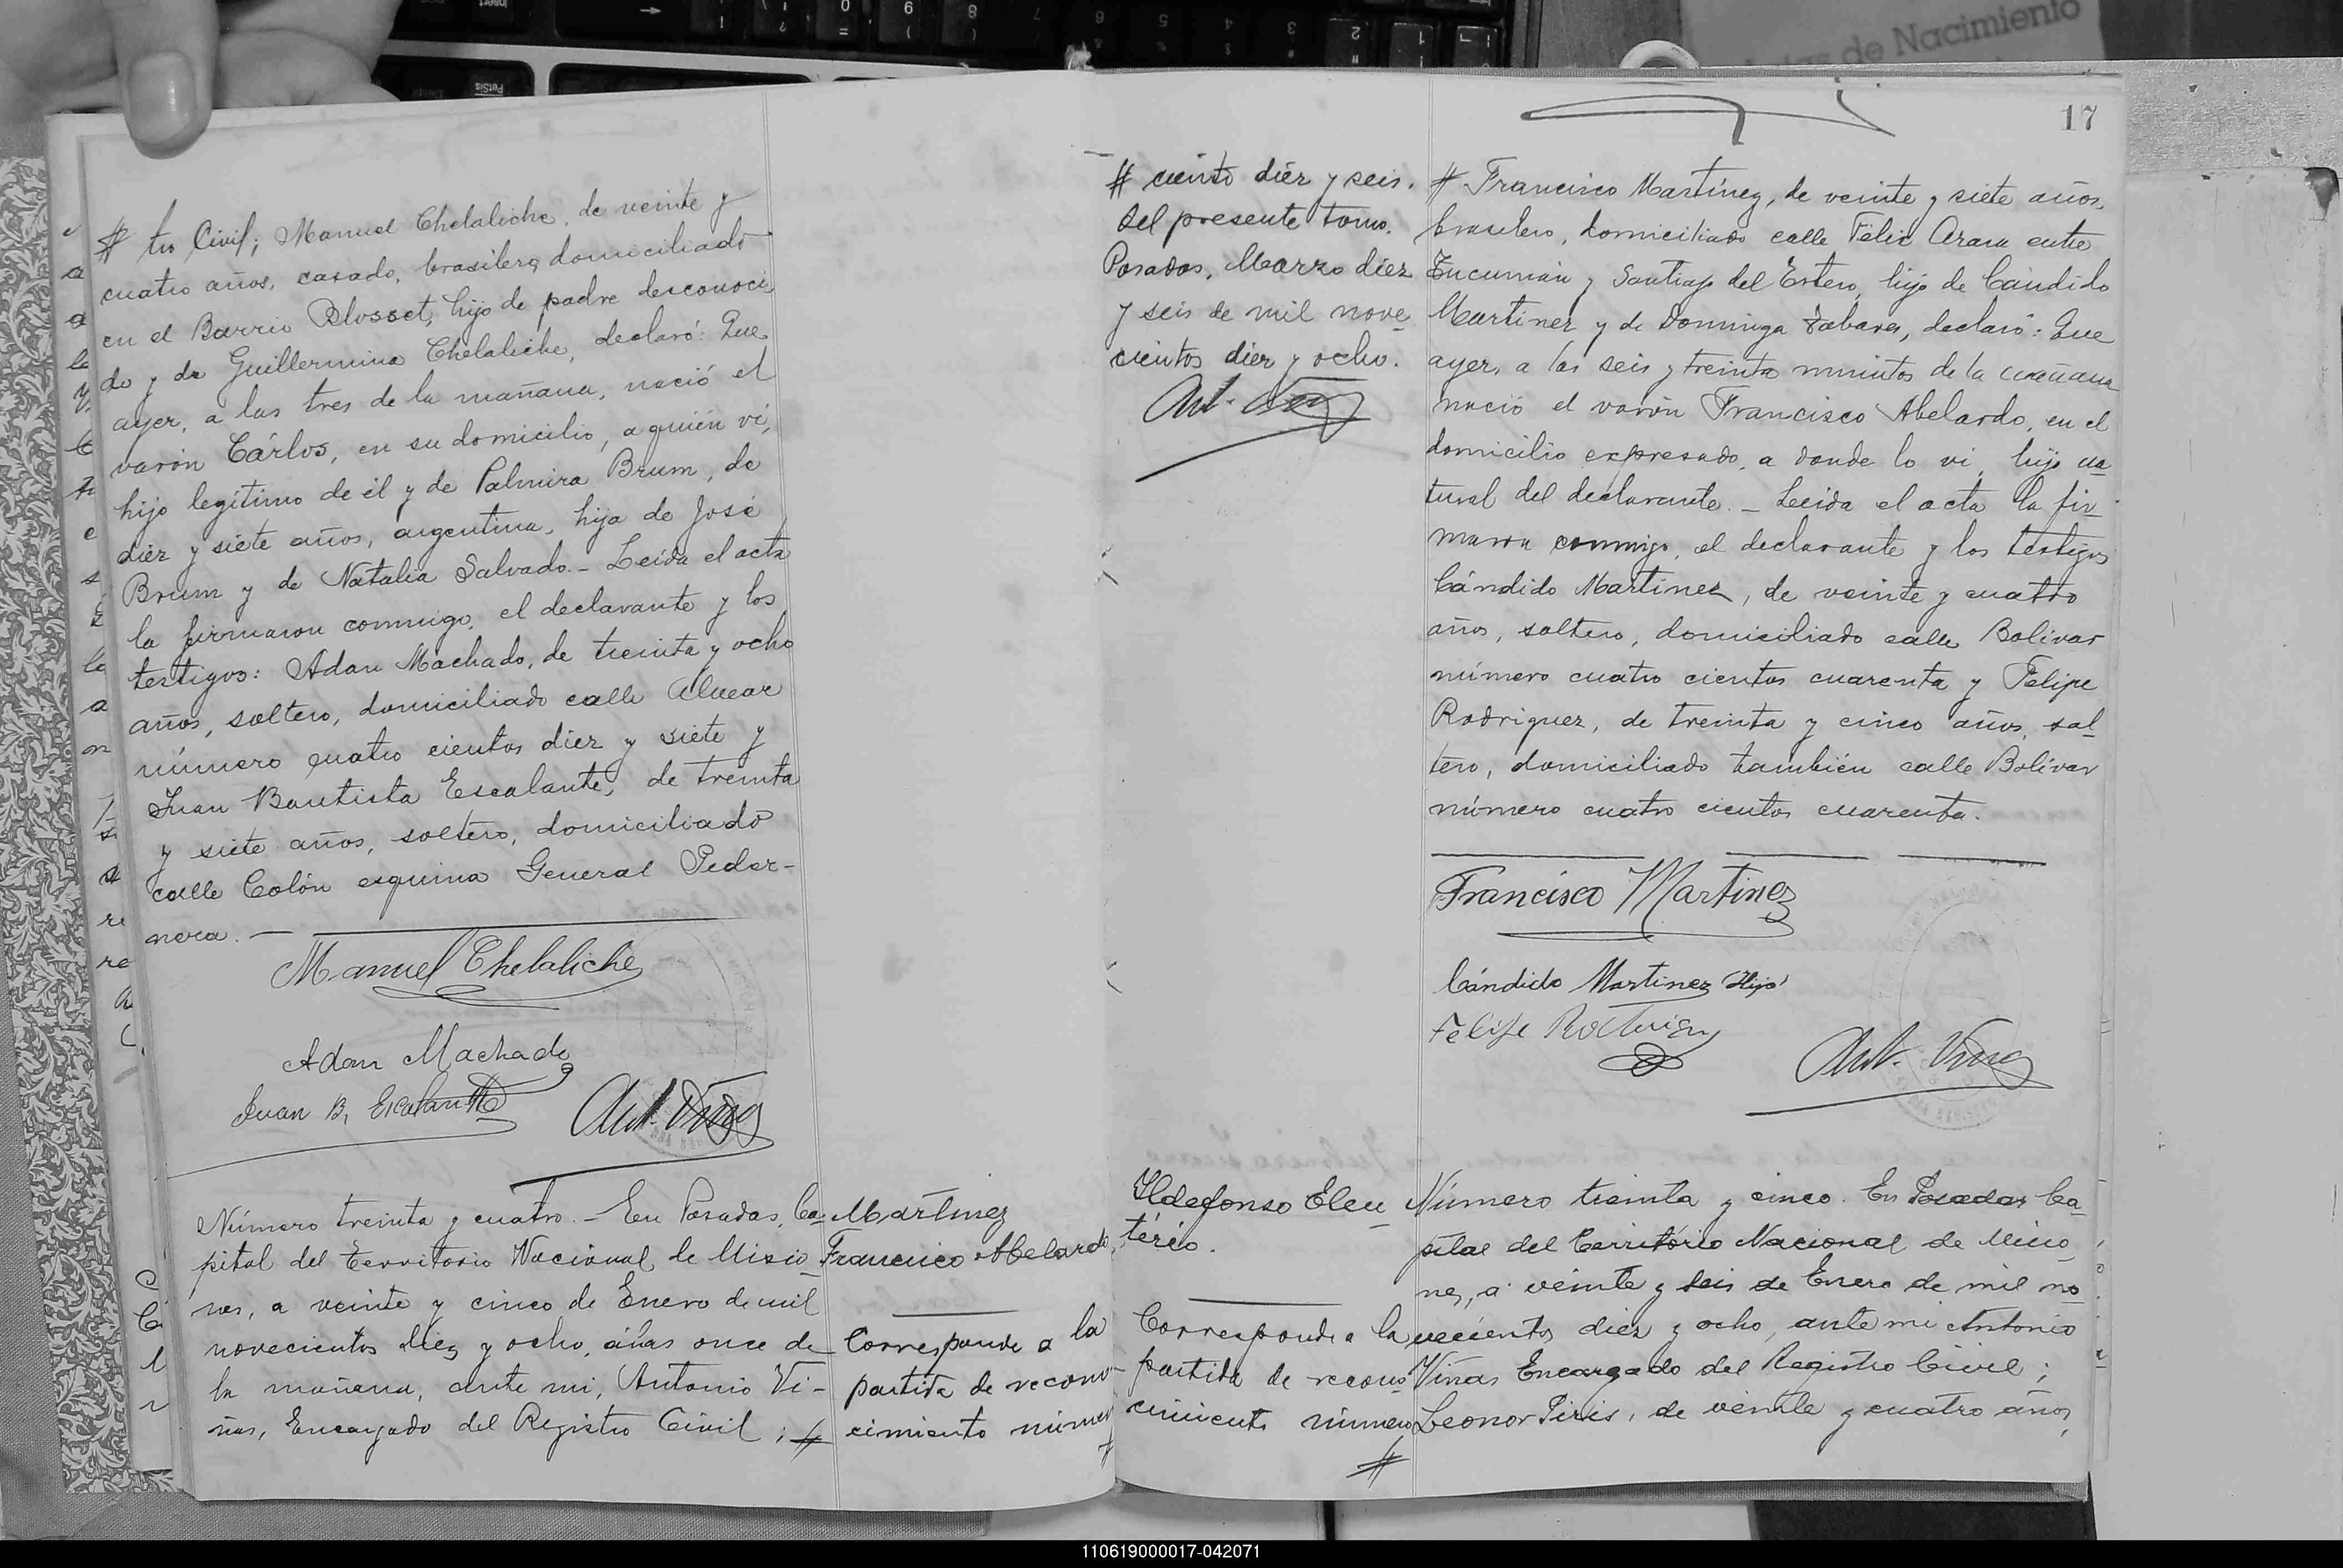 # tro Civil; Manuel Chelaliche, de veinte y
cuatro años, casado, brasilero, domiciliado
en el Barrio Blosset, hijo de padre desconoci
do y de Guillermina Chelaliche, declaró: Que
ayer, a las tres de la mañana, nació el
varón Cárlos, en su domicilio, a quién ví,
hijo legítimo de él y de Palmira Brum, de
diez y siete años, argentina, hija de José
Brum y de Natalia Salvado.- Leída el acta
la firmaron conmigo, el declarante y los
testigos: Adan Machado, de treinta y ocho
años, soltero, domiciliado calle Alvear
número cuatro cientos diez y siete y
Juan Bautista Escalante, de treinta
y siete años, soltero, domiciliado
calle Colón esquina General Peder-
nera. —
Manuel Chelaliche
Adan Machado
Juan B. Escalante
Ant. Viñas
Número treinta y cuatro.- En Posadas, Ca-
pital del Territorio Nacional de Misio-
nes, a veinte y cinco de Enero de mil
novecientos diez y ocho, á las once de
la mañana, ante mi, Antonio Vi-
ñas, Encargado del Registro Civil; #
Martinez
Francisco Abelardo,
Corresponde a la
partida de recono-
cimiento número
#
17
# ciento diez y seis.
del presente tomo.
Posadas, Marzo diez
y seis de mil nove
cientos diez y ocho.
Ant. Viñas
# Francisco Martínez, de veinte y siete años,
brasilero, domiciliado calle Félix Arara entre
Tucumán y Santiago del Estero, hijo de Cándido
Martinez y de Dominga Tabares, declaró: Que
ayer, a las seis y treinta minutos de la mañana
nació el varón Francisco Abelardo, en el
domicilio expresado, a donde lo vi, hijo na
tural del declarante.- Leída el acta la fir
maron conmigo, el declarante y los testigos
Cándido Martinez, de veinte y cuatro
años, soltero, domiciliado calle Bolivar
número cuatro cientos cuarenta y Felipe
Rodriguez, de treinta y cinco años, sol
tero, domiciliado también calle Bolivar
número cuatro cientos cuarenta.
Francisco Martinez
Cándido Martinez (Hijo)
Felipe Rodriguez
Ant. Viñas
Ildefonso Eleu
tério.
Corresponde a la
partida de recono
cimiento número
#
Número treinta y cinco. En Posadas Ca
pital del Territorio Nacional de Misio
nes, a veinte y seis de Enero de mil no
vecientos diez y ocho, ante mi Antonio
Viñas Encargado del Registro Civil;
Leonor Piris, de veinte y cuatro años,
110619000017-042071
de Nacimiento